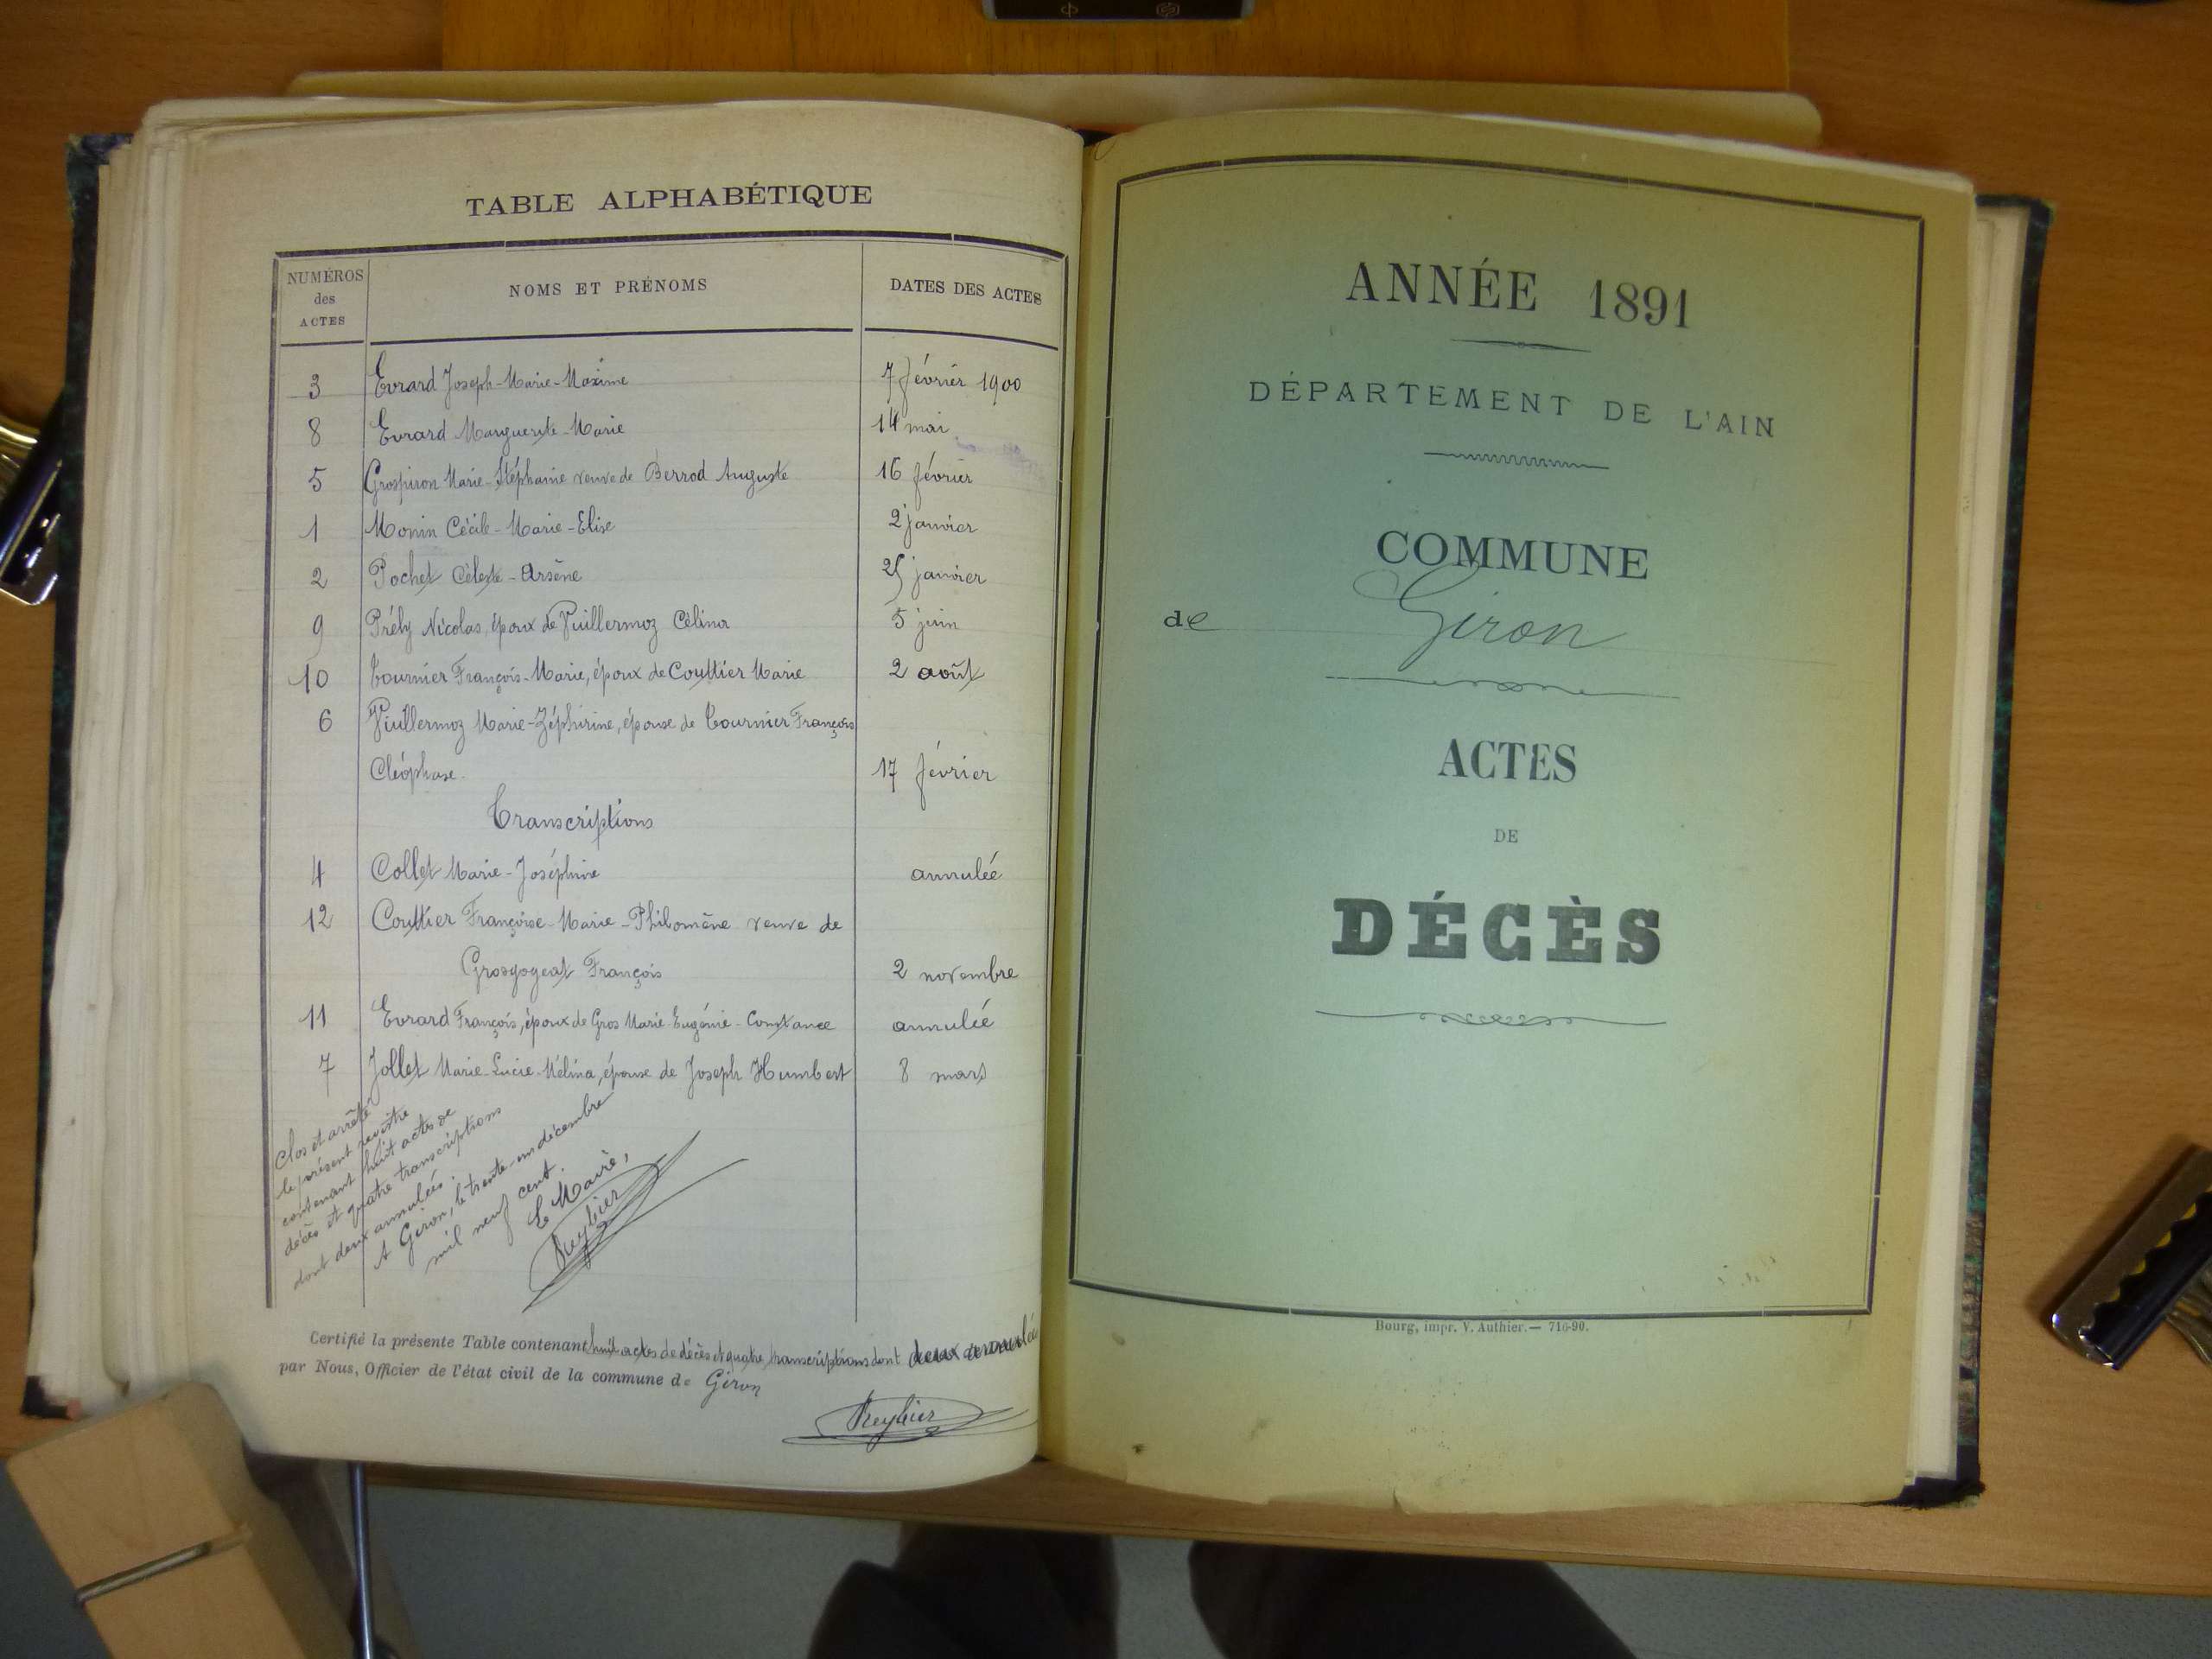 TABLE ALPHABÉTIQUE
NUMÉROS
des
ACTES
NOMS ET PRÉNOMS
DATES DES ACTES
3 Evrard Joseph-Marie-Maxime 7 février 1900
8 Evrard Marguerite-Marie 14 mai
5 Grospiron Marie-Stéphanie veuve de Berrod Auguste 16 février
1 Monin Cécile-Marie-Elise 2 janvier
2 Pochet Céleste-Arsène 25 janvier
9 Prély Nicolas, époux de Vuillermoz Célina 5 juin
10 Tournier François-Marie, époux de Couttier Marie 2 août
6 Vuillermoz Marie-Zéphirine, épouse de Tournier François
Cléophase. 17 février
Transcriptions
4 Collet Marie-Joséphine annulée
12 Couttier Françoise-Marie-Philomène veuve de
Grosgogeat François 2 novembre
11 Evrard François, époux de Gros Marie-Eugénie-Constance annulée
7 Jollet Marie-Lucie-Mélina, épouse de Joseph Humbert 8 mars
Clos et arrêté
le présent registre
contenant huit actes de
décès et quatre transcriptions
dont deux annulées.
A Giron, le trente-un décembre
mil neuf cent.
Le Maire,
Certifié la présente Table contenant huit actes de décès et quatre transcriptions dont deux annulées
par Nous, Officier de l'état civil de la commune de Giron
ANNÉE 1891
DÉPARTEMENT DE L'AIN
COMMUNE
de Giron
ACTES
DE
DÉCÈS
Bourg, impr. V. Authier.— 716-90.